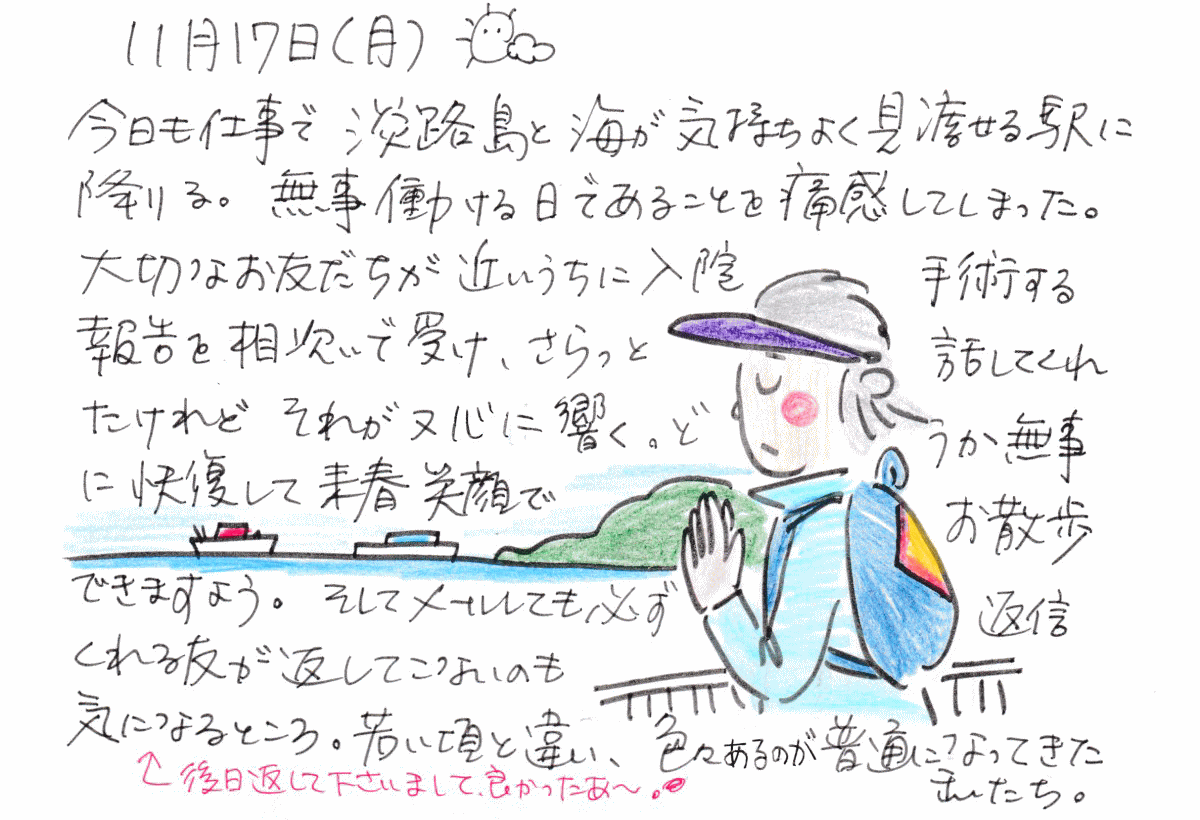 11月17日(月)
今日も仕事で 淡路島と 海が 気持ちよく 見渡せる 駅に
降りる。 無事 働ける日であることを 痛感してしまった。
大切なお友だちが 近いうちに 入院 手術する
報告を 相次いで 受け、さらっと 話してくれ
たけれど それが又心に 響く。ど うか 無事
に 快復して 来春 笑顔で お散歩
できますよう。 そしてメールしても 必ず 返信
くれる友が 返してこないのも
気になるところ。若い頃と違い、色々あるのが普通になってきた
私たち。
↑後日返して下さいまして、良かったあ〜。